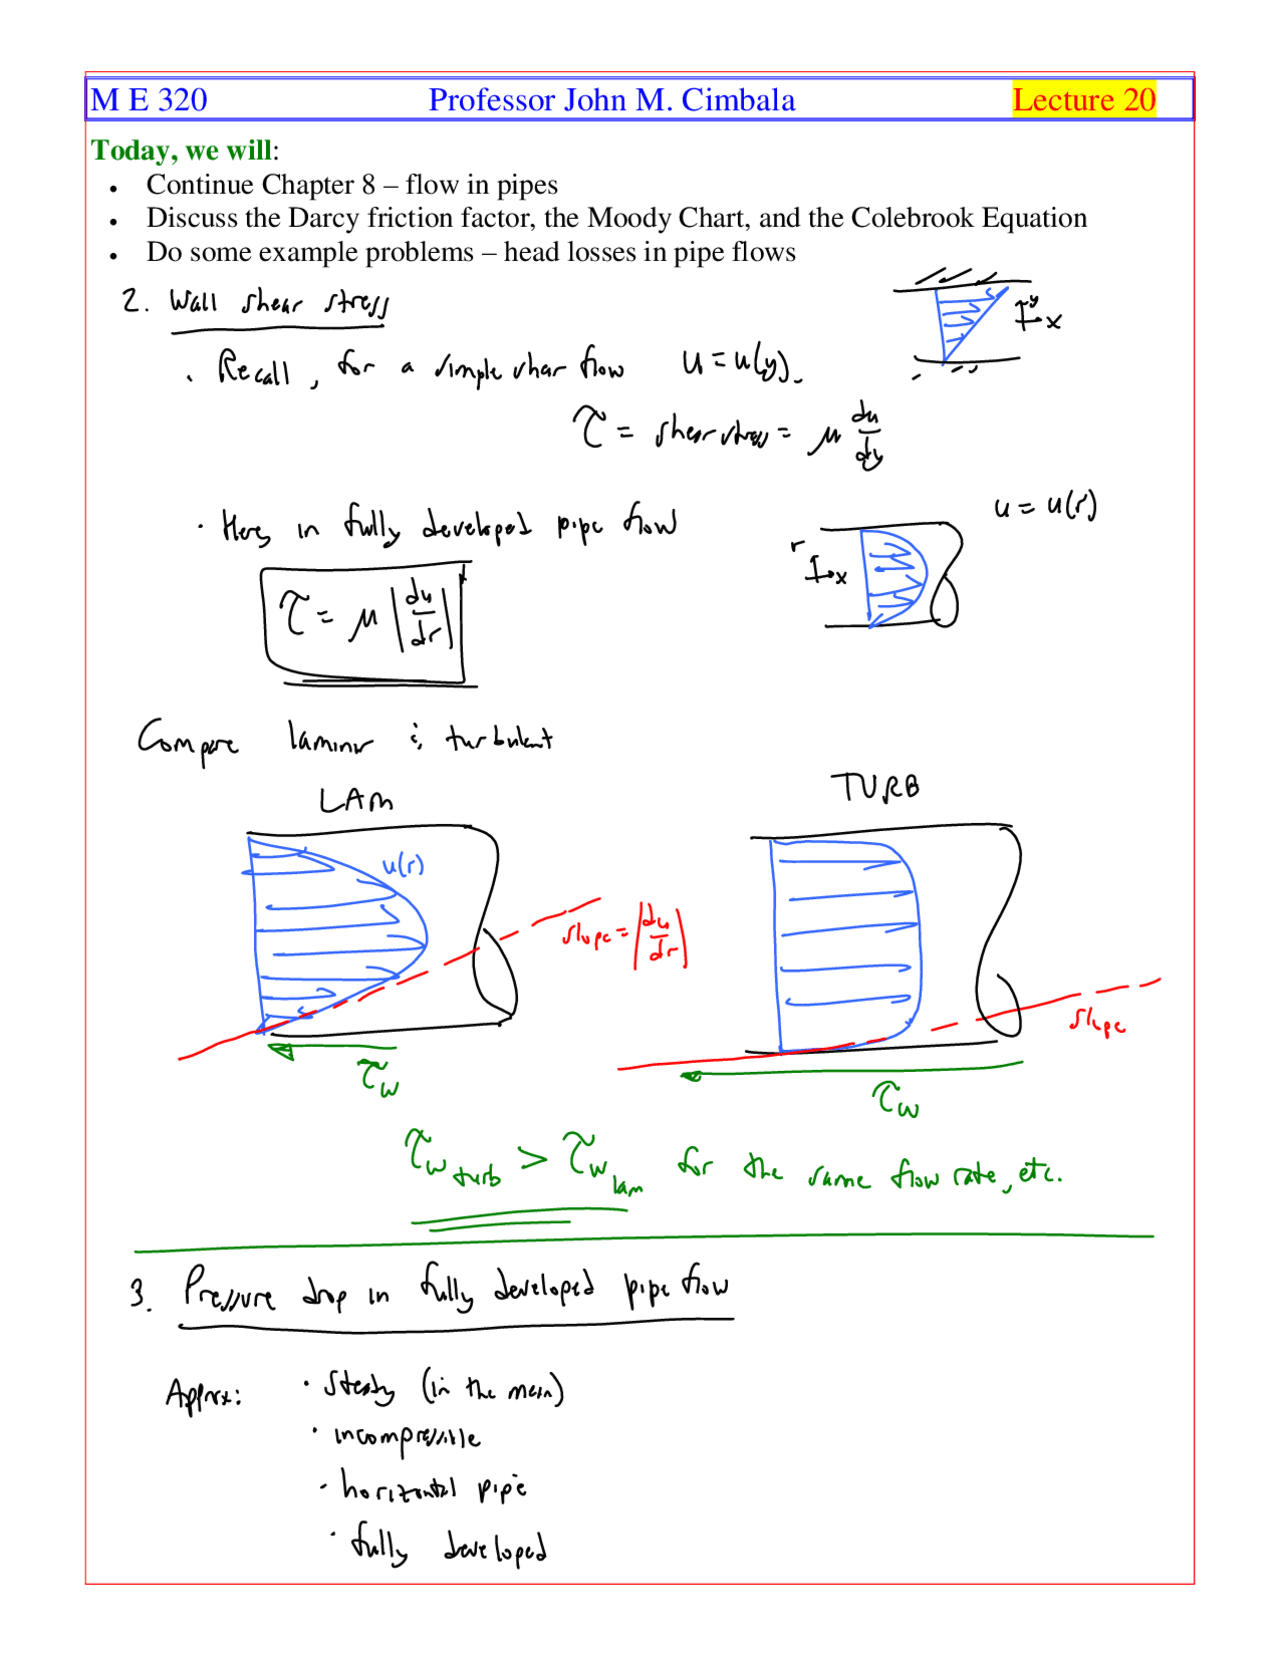 M E 320 Professor John M. Cimbala Lecture 20
Today, we will:
• Continue Chapter 8 – flow in pipes
• Discuss the Darcy friction factor, the Moody Chart, and the Colebrook Equation
• Do some example problems – head losses in pipe flows
2. Wall shear stress
y
x
· Recall, for a simple shear flow u = u(y).
τ = shear stress = μ du/dy
u = u(r)
· Here, in fully developed pipe flow
r
x
τ = μ |du/dr|
Compare laminar & turbulent
LAM TURB
u(r)
slope = |du/dr|
slope
τw
τw
τw turb > τw lam for the same flow rate, etc.
3. Pressure drop in fully developed pipe flow
Approx: · steady (in the mean)
· incompressible
· horizontal pipe
· fully developed